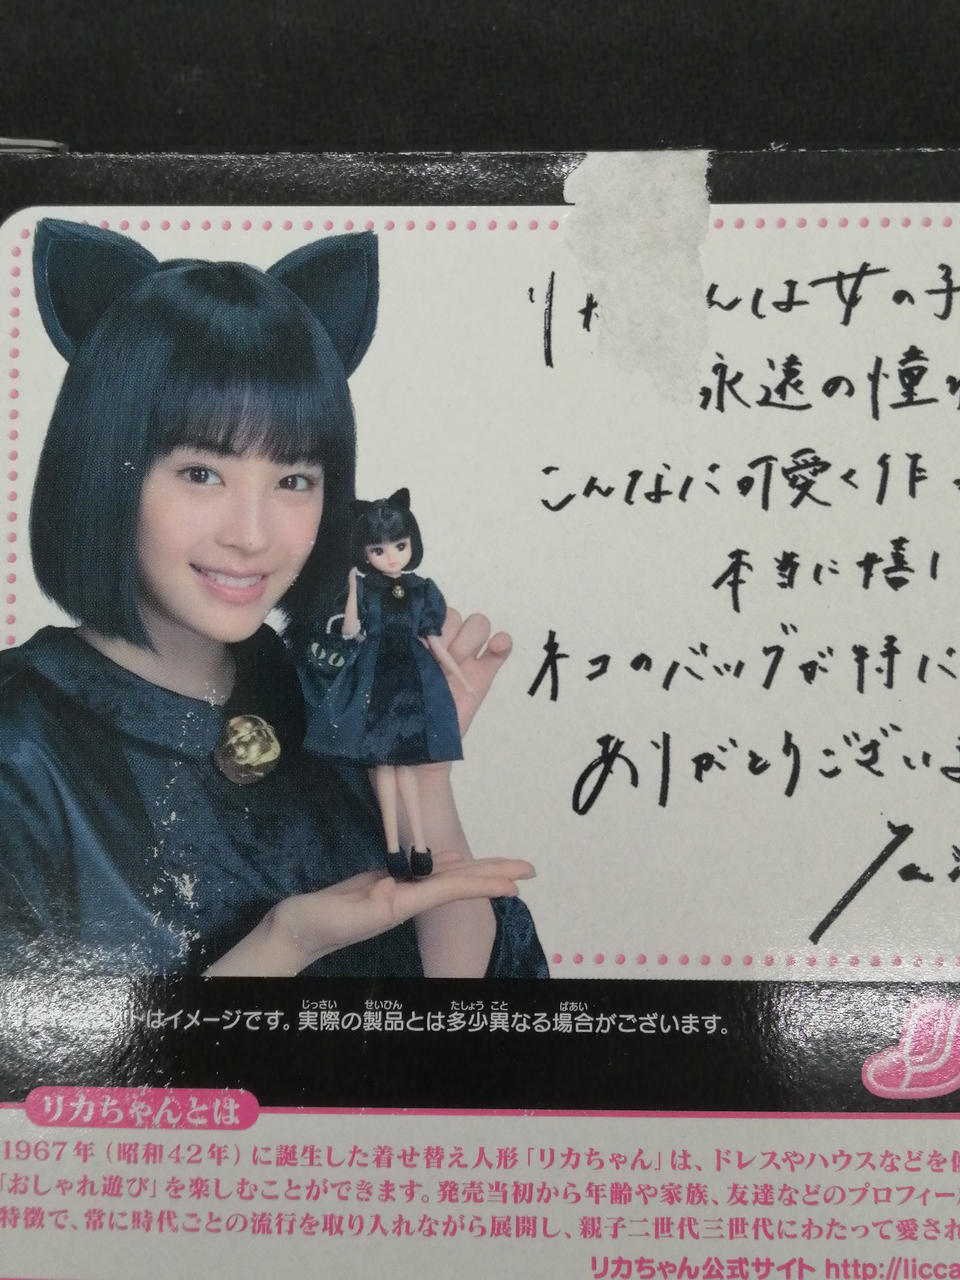 リ んは女の子
永遠の憧
こんなに可愛く作
本当に嬉し
ネコのバッグが特に
ありがとうございま
はイメージです。実際の製品とは多少異なる場合がございます。
じっさい せいひん たしょう こと ばあい
リカちゃんとは
1967年(昭和42年)に誕生した着せ替え人形「リカちゃん」は、ドレスやハウスなどを
「おしゃれ遊び」を楽しむことができます。発売当初から年齢や家族、友達などのプロフィー
特徴で、常に時代ごとの流行を取り入れながら展開し、親子二世代三世代にわたって愛され
リカちゃん公式サイト http://licca